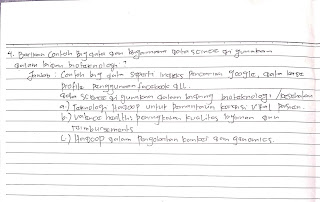 4. Berikan Contoh big data dan bagaimana data science di gunakan
dalam bidang bioteknologi ?
Jawab : Contoh big data seperti indeks Pencarian google, data base
Profile pengguna facebook dll.
data science di gunakan dalam bidang bioteknologi / kesehatan
a) Teknologi Hadoop untuk Pemantauan kondisi vital Pasien.
b) Valence health : peningkatan kualitas layanan dan
reimbursements
C) Hadoop dalam pengobatan kanker dan genomics.